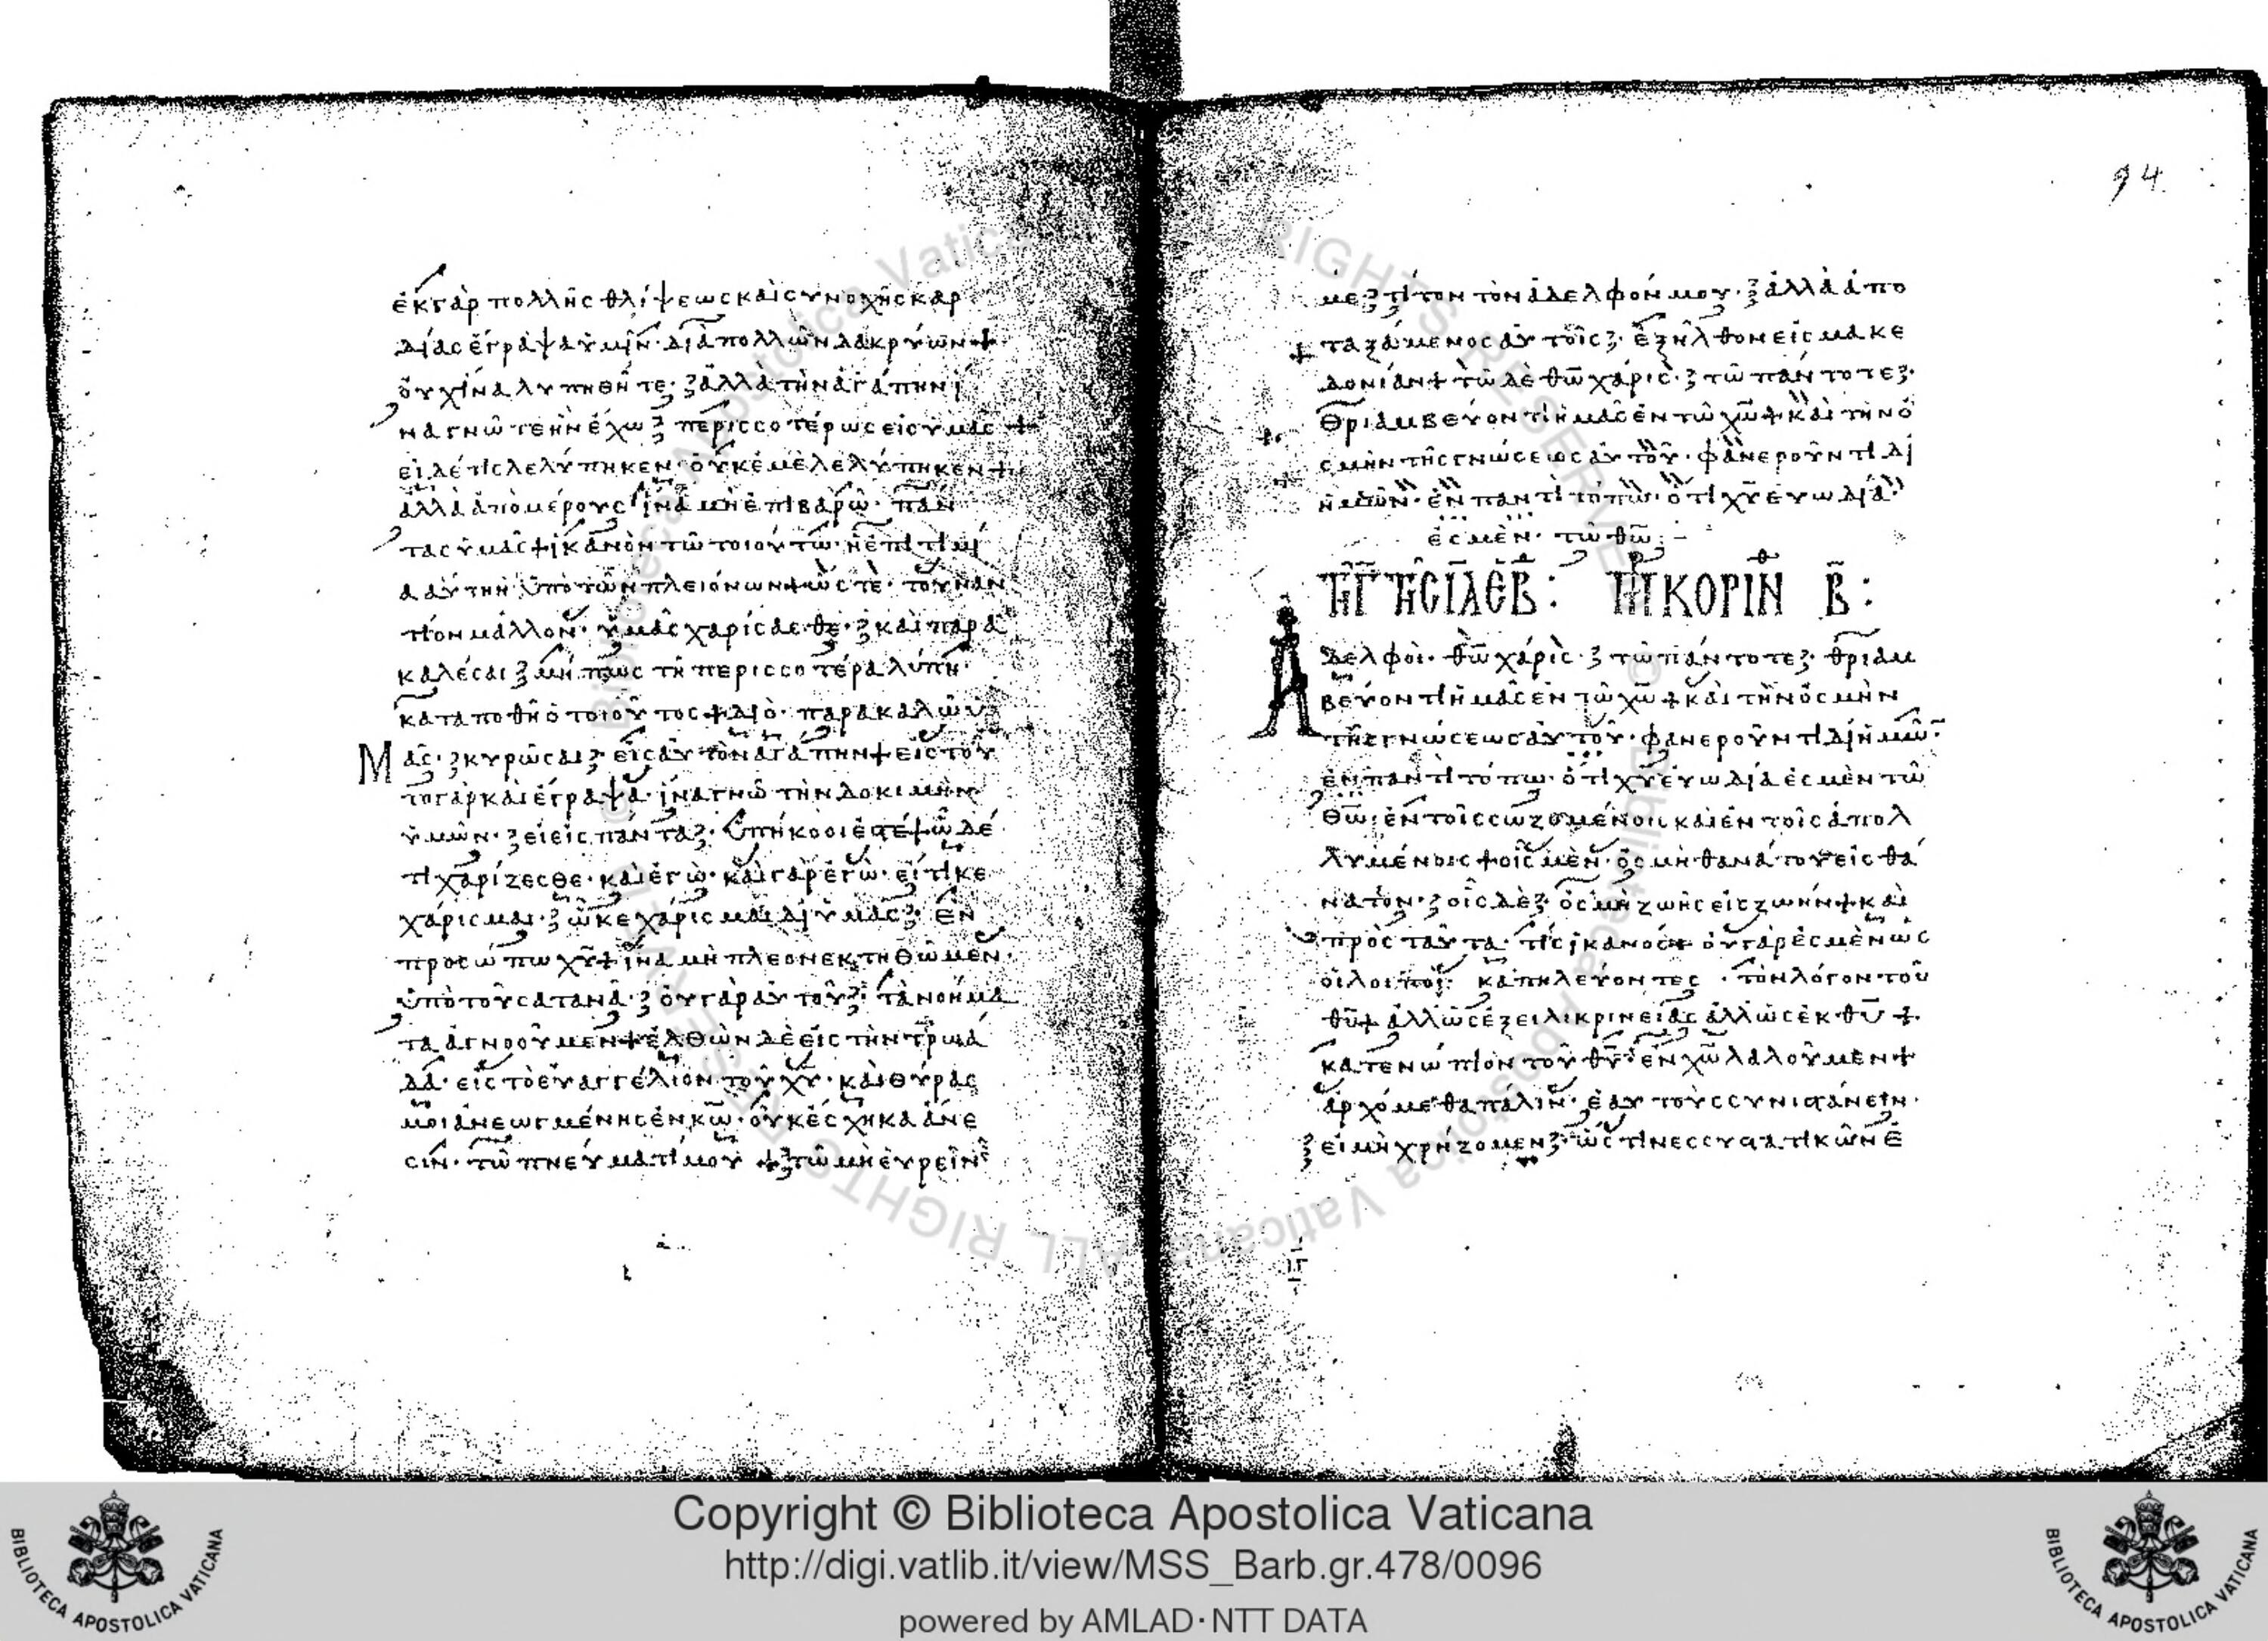 ἐκ γὰρ πολλῆς θλίψεως καὶ συνοχῆς καρ
δίας ἔγραψα ὑμῖν· διὰ πολλῶν δακρύων+
οὐχ ἵνα λυπηθῆτε· ἀλλὰ τὴν ἀγάπην ἵ
να γνῶτε ἣν ἔχω περισσοτέρως εἰς ὑμᾶς+
εἰ δέ τις λελύπηκεν· οὐκ ἐμὲ λελύπηκεν+
ἀλλὰ ἀπὸ μέρους ἵνα μὴ ἐπιβαρῶ· πάν
τας ὑμᾶς+ ἱκανὸν τῶ τοιούτω· ἡ ἐπιτιμί
α αὕτη ἡ ὑπὸ τῶν πλειόνων+ ὥστε· τοὐναν
τίον μᾶλλον· ὑμᾶς χαρίσασθε· καὶ παρα
καλέσαι μήπως τῆ περισσοτέρα λύπη·
καταποθῆ ὁ τοιοῦτος+ διὸ· παρακαλῶ ὑ
Μᾶς· κυρῶσαι εἰς αὐτὸν ἀγάπην+ εἰς τοῦ
το γὰρ καὶ ἔγραψα· ἵνα γνῶ τὴν δοκιμὴν
ὑμῶν· εἰ εἰς πάντα· ὑπήκοοί ἐστέ+ ὧ δέ
τι χαρίζεσθε· καὶ ἐγώ· καὶ γὰρ ἐγὼ· εἴ τι κε
χάρισμαι· ὧ κεχάρισμαι δι' ὑμᾶς· ἐν
προσώπω χυ+ ἵνα μὴ πλεονεκτηθῶμεν·
ὑπὸ τοῦ σατανᾶ· οὐ γὰρ αὐτοῦ τὰ νοήμα
τα ἀγνοοῦμεν+ ἐλθὼν δὲ εἰς τὴν τρωά
δα· εἰς τὸ εὐαγγέλιον τοῦ χυ· καὶ θύρας
μοι ἀνεωγμένης ἐν κω· οὐκ ἔσχηκα ἄνε
σιν· τῶ πνεύματί μου + τῶ μὴ εὑρεῖν
94
με τίτον τὸν ἀδελφόν μου· ἀλλὰ ἀπο
ταξάμενος αὐτοῖς· ἐξῆλθον εἰς μακε
δονίαν+ τῶ δὲ θω χάρις· τῶ πάντοτε
θριαμβεύοντι ἡμᾶς ἐν τῶ χω+ καὶ τὴν ὀ
σμὴν τῆς γνώσεως αὐτοῦ· φανεροῦντι δι'
ἡμῶν· ἐν παντὶ τόπω· ὅτι χυ εὐωδία
ἐσμὲν· τῶ θω:–
ΚΟΡΙΝ Β:
δελφοί· θω χάρις· τῶ πάντοτε θριαμ
βεύοντι ἡμᾶς ἐν τῶ χω+ καὶ τὴν ὀσμὴν
τῆς γνώσεως αὐτοῦ· φανεροῦντι δι' ἡμῶ·
ἐν παντὶ τόπω· ὅτι χυ εὐωδία ἐσμὲν τῶ
θω· ἐν τοῖς σωζομένοις καὶ ἐν τοῖς ἀπολ
λυμένοις+ οἷς μὲν· ὀσμὴ θανάτου εἰς θά
νατον· οἷς δὲ ὀσμὴ ζωῆς εἰς ζωήν+ καὶ
πρὸς ταῦτα· τίς ἱκανός+ οὐ γάρ ἐσμεν ὡς
οἱ λοιποί· καπηλεύοντες · τὸν λόγον τοῦ
θυ+ ἀλλ' ὡς ἐξ εἰλικρινείας ἀλλ' ὡς ἐκ θυ +
κατενώπιον τοῦ θυ· ἐν χω λαλοῦμεν+
ἀρχόμεθα πάλιν· ἑαυτοὺς συνιστάνειν·
εἰ μὴ χρήζομεν· ὥς τινες συστατικῶν ἐ